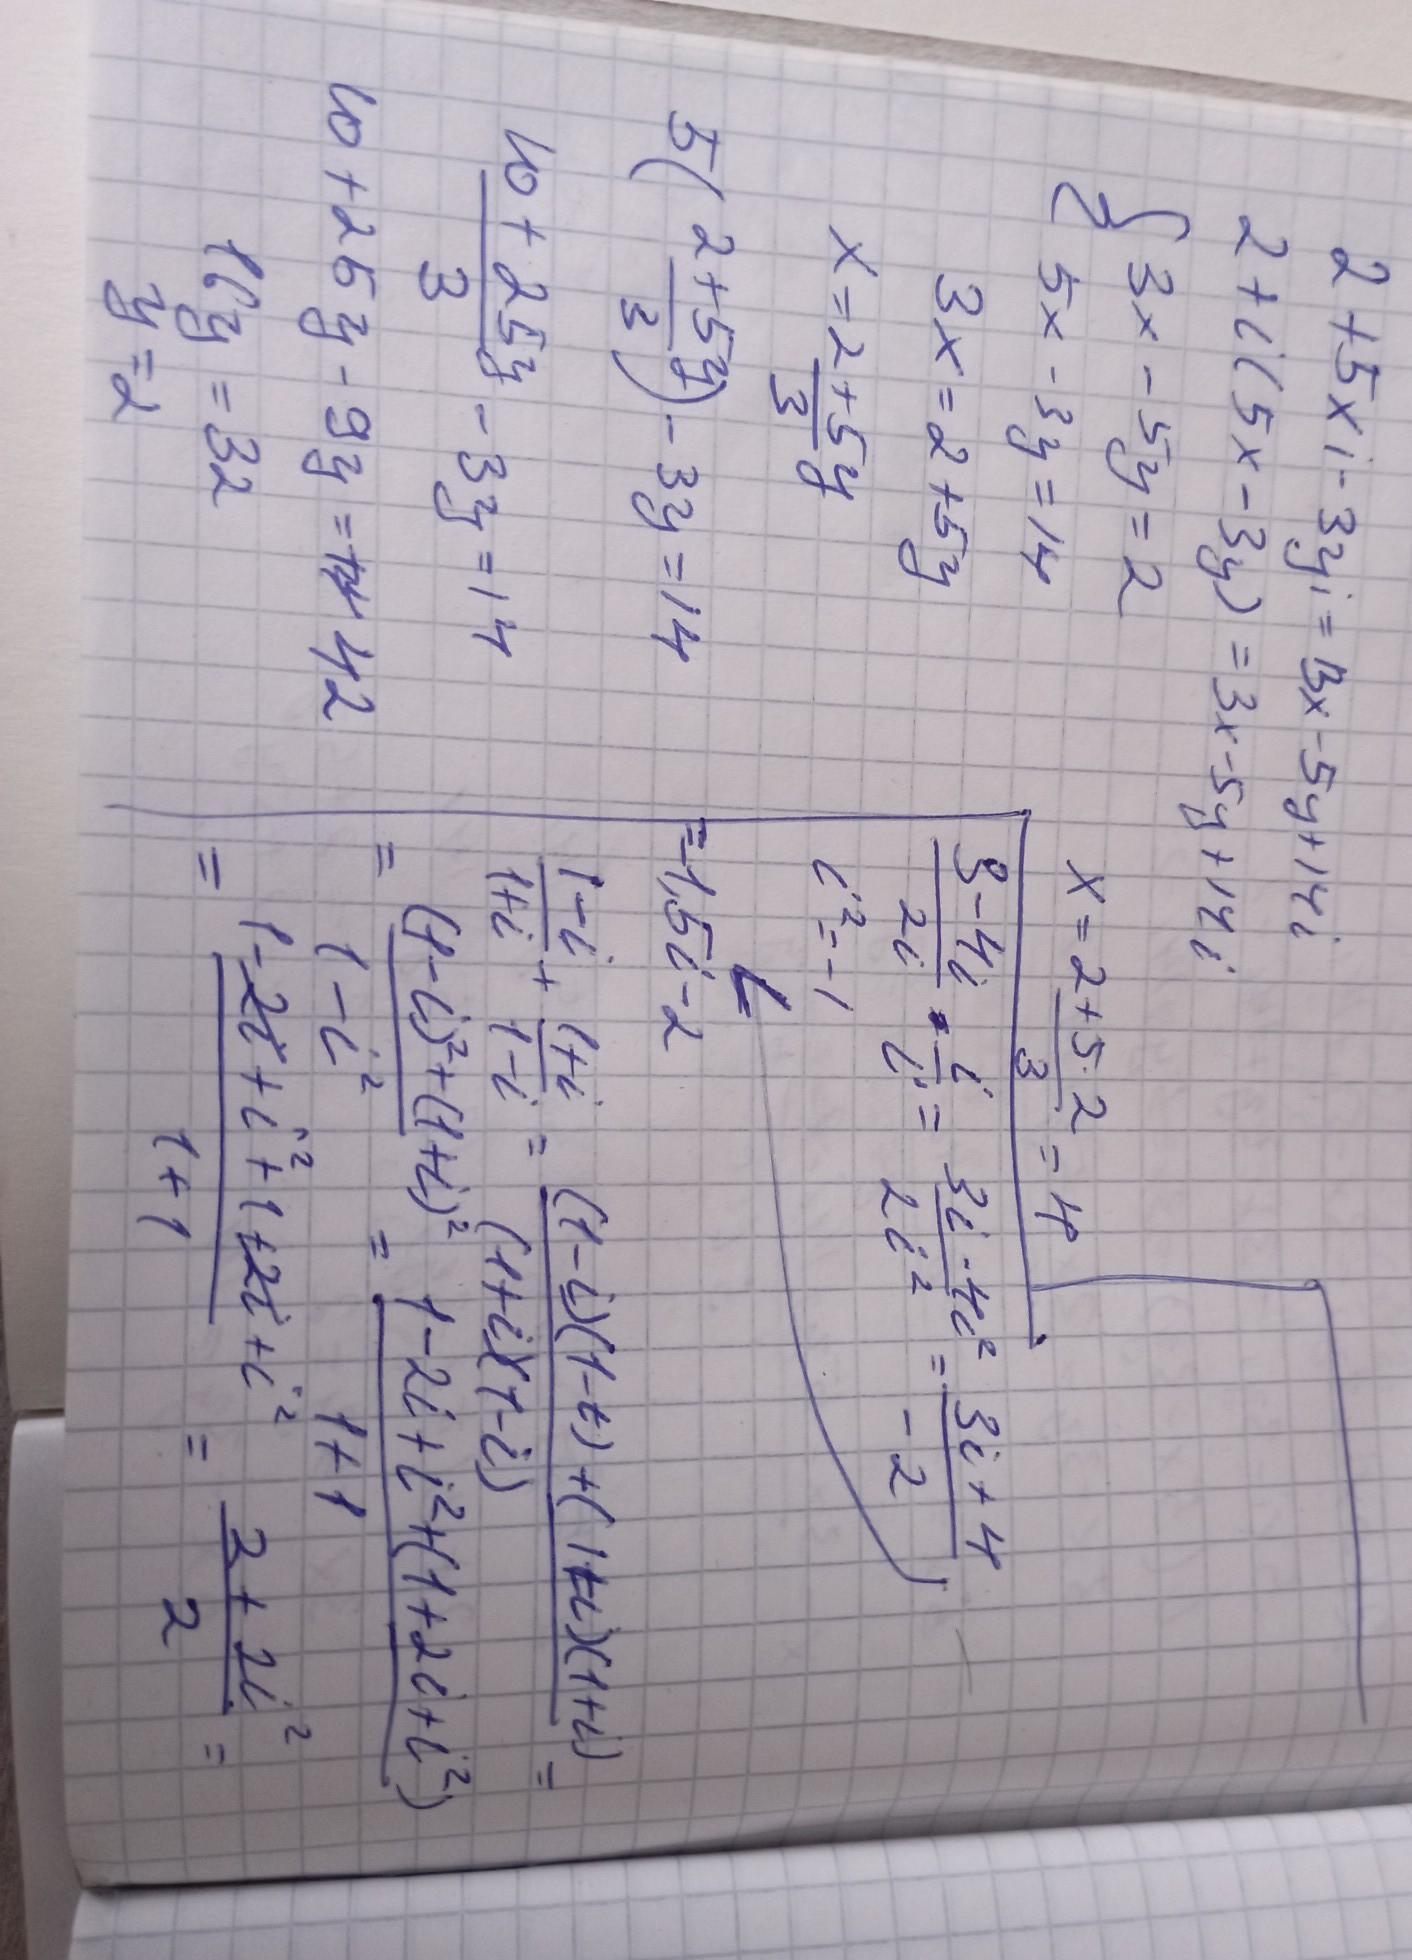 2+5xi-3yi=3x-5y+14i
2+i(5x-3y)=3x-5y+14i
{3x-5y=2
5x-3y=14
3x=2+5y
x=2+5y/3
5(2+5y/3)-3y=14
10+25y/3-3y=14
10+25y-9y=42
16y=32
y=2
x=2+5·2/3=4
3-4i/2i·i/i=3i-4i²/2i²=3i+4/-2
i²=-1
=-1,5i-2
1-i/1+i+1+i/1-i=(1-i)(1-i)+(1+i)(1+i)/(1+i)(1-i)=
=(1-i)²+(1+i)²/1-i²=1-2i+i²+(1+2i+i²)/1+1
=1-2i+i²+1+2i+i²/1+1=2+2i²/2=